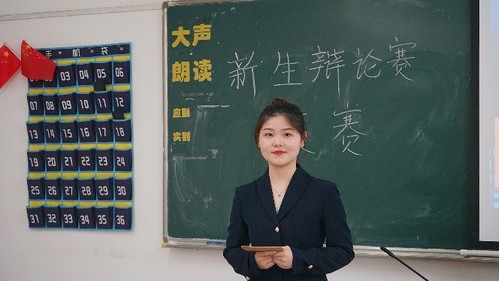 03 04 05 06
07 08 09 10 11 12
13 14 15 16 17 18
19 20 21 22 23 24
25 26 27 28 29 30
31 32 33 34 35 36
大声
朗读
应到
实到
新生辩论赛
赛